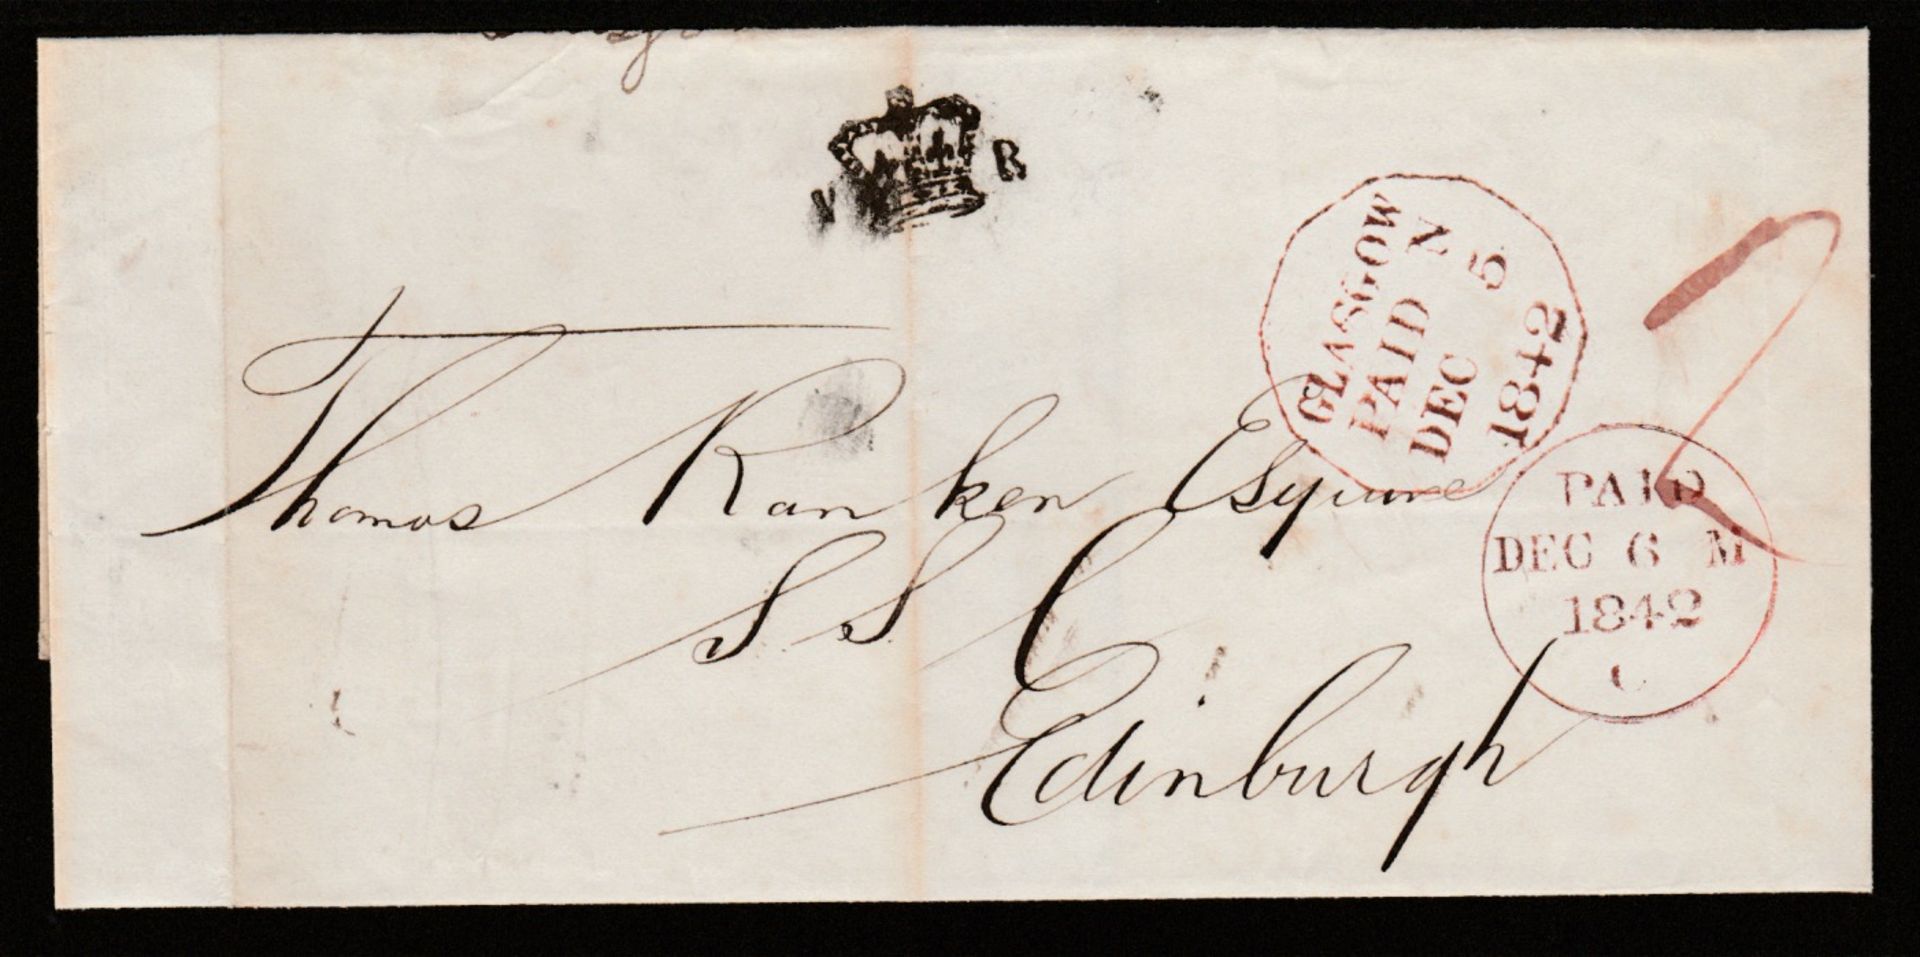 V R
GLASGOW
PAID N
DEC 5
1842
Thomas Ranken Esquire
S. S. C
Edinburgh
PAID
DEC 6 M
1842
C